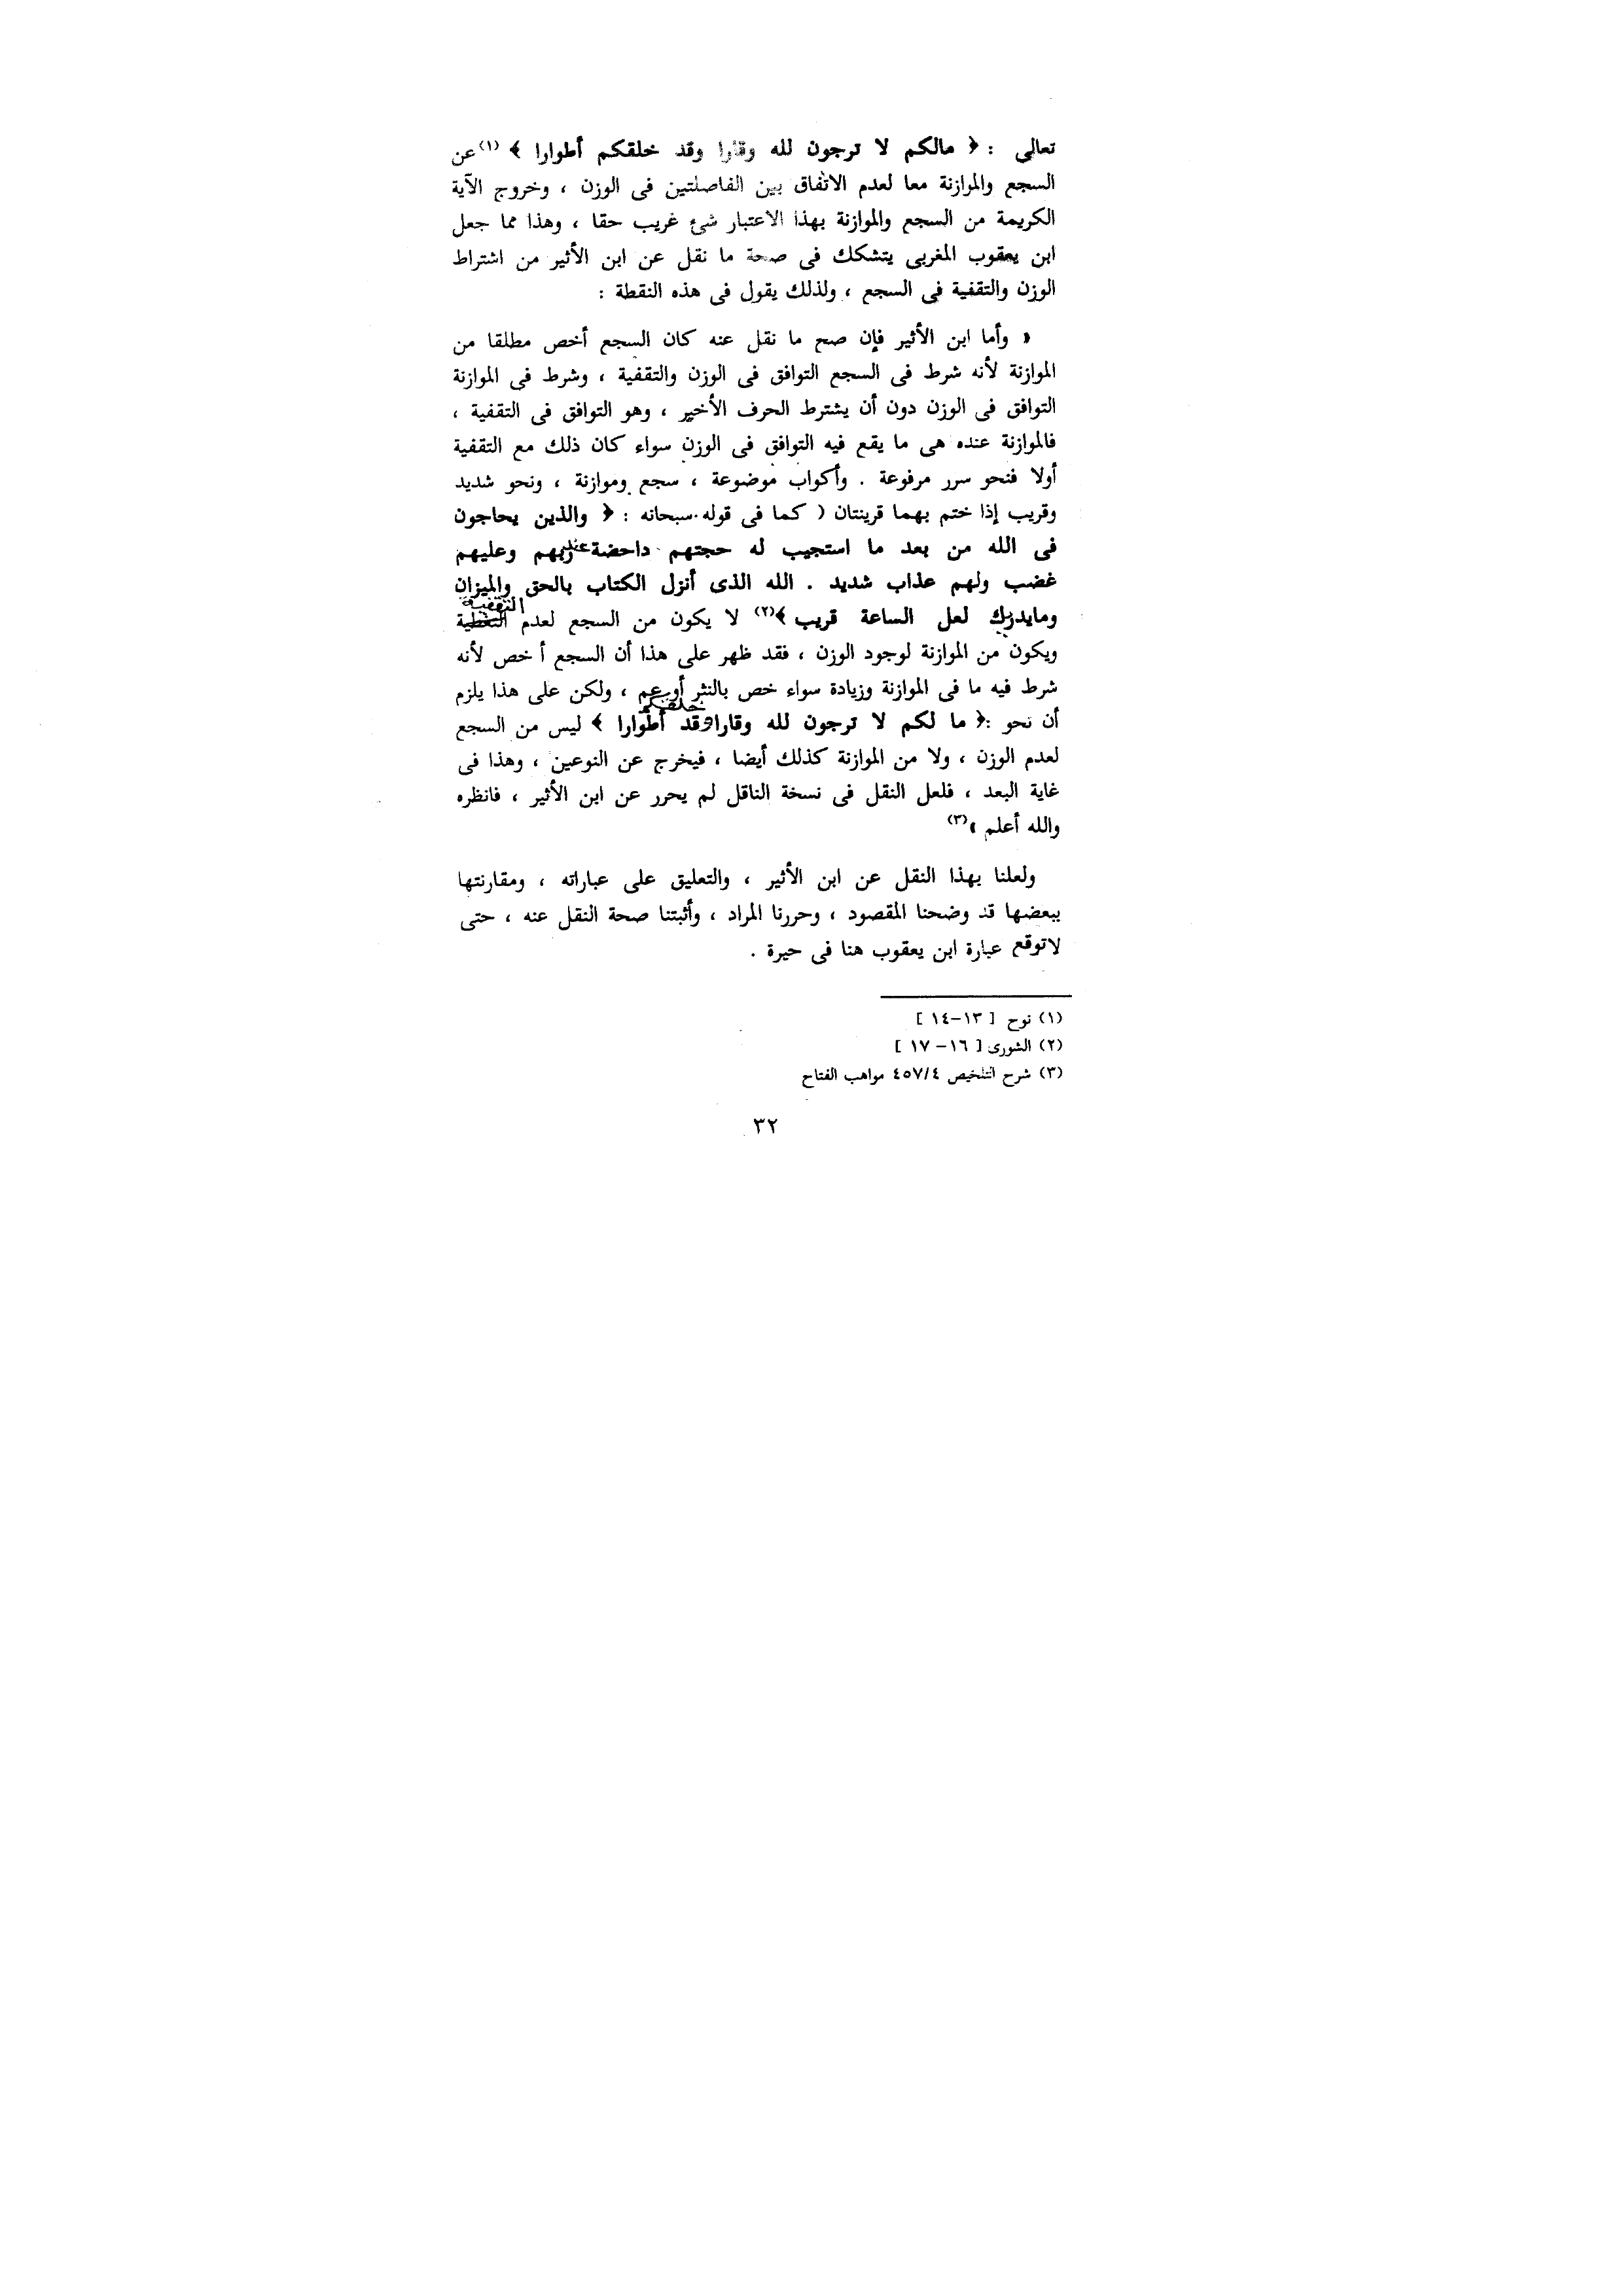 تعالى : ﴿ مالكم لا ترجون لله وقارا وقد خلقكم أطوارا ﴾ (١) عن
السجع والموازنة معا لعدم الاتفاق بين الفاصلتين فى الوزن ، وخروج الآية
الكريمة من السجع والموازنة بهذا الاعتبار شئ غريب حقا ، وهذا مما جعل
ابن يعقوب المغربى يتشكك فى صحة ما نقل عن ابن الأثير من اشتراط
الوزن والتقفية فى السجع ، ولذلك يقول فى هذه النقطة :
« وأما ابن الأثير فإن صح ما نقل عنه كان السجع أخص مطلقا من
الموازنة لأنه شرط فى السجع التوافق فى الوزن والتقفية ، وشرط فى الموازنة
التوافق فى الوزن دون أن يشترط الحرف الأخير ، وهو التوافق فى التقفية ،
فالموازنة عنده هى ما يقع فيه التوافق فى الوزن سواء كان ذلك مع التقفية
أولا فنحو سرر مرفوعة . وأكواب موضوعة ، سجع وموازنة ، ونحو شديد
وقريب إذا ختم بهما قرينتان ( كما فى قوله سبحانه : ﴿ والذين يحاجون
فى الله من بعد ما استجيب له حجتهم داحضة عند ربهم وعليهم
غضب ولهم عذاب شديد . الله الذى أنزل الكتاب بالحق والميزان
ومايدريك لعل الساعة قريب ﴾(٢) لا يكون من السجع لعدم التقفية
ويكون من الموازنة لوجود الوزن ، فقد ظهر على هذا أن السجع أ خص لأنه
شرط فيه ما فى الموازنة وزيادة سواء خص بالنثر أو عم ، ولكن على هذا يلزم
أن نحو :﴿ ما لكم لا ترجون لله وقارا وقد خلقكم أطوارا ﴾ ليس من السجع
لعدم الوزن ، ولا من الموازنة كذلك أيضا ، فيخرج عن النوعين ، وهذا فى
غاية البعد ، فلعل النقل فى نسخة الناقل لم يحرر عن ابن الأثير ، فانظره
والله أعلم »(٣)
ولعلنا بهذا النقل عن ابن الأثير ، والتعليق على عباراته ، ومقارنتها
ببعضها قد وضحنا المقصود ، وحررنا المراد ، وأثبتنا صحة النقل عنه ، حتى
لاتوقع عبارة ابن يعقوب هنا فى حيرة .
(١) نوح [ ١٣–١٤ ]
(٢) الشورى [ ١٦– ١٧ ]
(٣) شرح التلخيص ٤٥٧/٤ مواهب الفتاح
٣٢